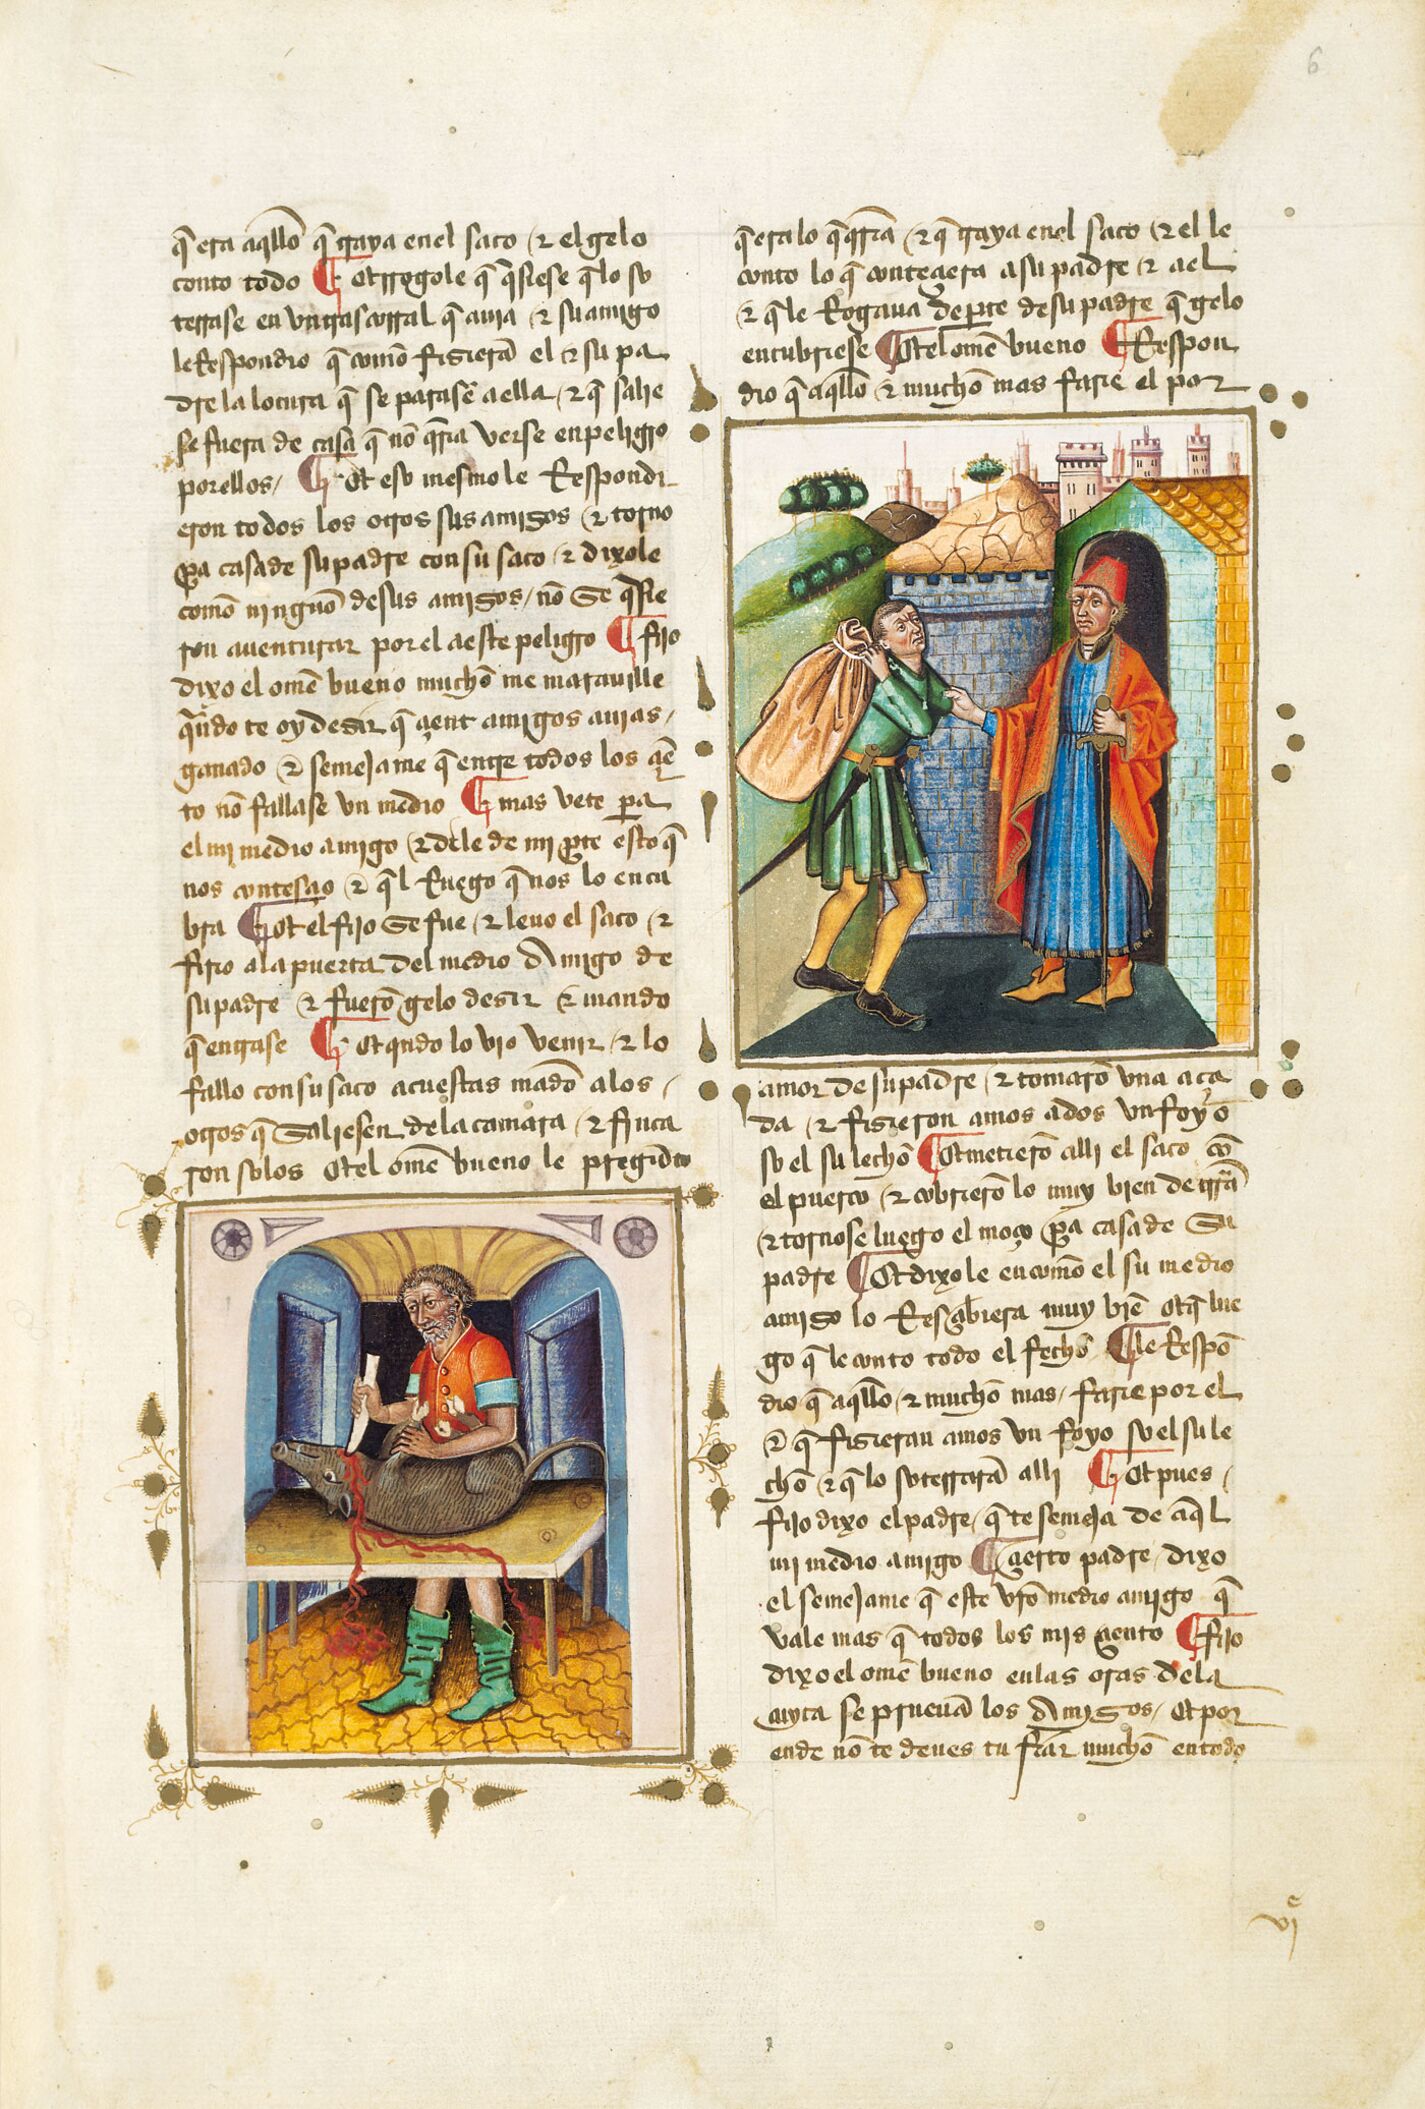 6
q̃ era aq̃llo q̃ traya en el saco ⁊ el gelo
conto todo ¶ Et rrogole q̃ q̃siese q̃ lo so
terrase en vn trascorral q̃ auia ⁊ su amigo
le Respondio q̃ como fisierã el ⁊ su pa
dre la locura q̃ se parasẽ a ella ⁊ q̃ salie
se fuera de casa q̃ nõ q̃ria verse en peligro
por ellos / ¶ Et eso mesmo le Respondi
eron todos los otros sus amigos ⁊ torno
pa casa de su padre con su saco ⁊ dixole
como ningũo de sus amigos / nõ se q̃sie
ron auenturar por el a este peligro ¶ fijo
dixo el omẽ bueno muchõ me marauille
q̃ndo te oy desir q̃ çient amigos auias /
ganado ⁊ semejame q̃ entre todos los çiẽ
to nõ fallase vn medio ¶ mas vete pa
el mi medio amigo ⁊ dile de mi pte esto q̃
nos contesçio ⁊ q̃l Ruego q̃ nos lo encu
bra ¶ Et el fijo se fue ⁊ leuo el saco ⁊
firio a la puerta del medio Amigo de
su padre ⁊ fuerõ gelo desir ⁊ mando
q̃ entrase ¶ Et qndo lo vio venir ⁊ lo
fallo con su saco acuestas mãdo a los /
otros q̃ saliesen de la camara ⁊ finca
ron solos Et el omẽ bueno le pregũto
q̃ era lo q̃ q̃ria ⁊ q̃ traya en el saco ⁊ el le
conto lo q̃ conteçiera a su padre ⁊ a el
⁊ q̃ le Rogaua de pte de su padre q̃ gelo
encubriese ¶ Et el omẽ bueno ¶ Respon
dio q̃ aq̃llo ⁊ muchõ mas farie el por
amor de su padre ⁊ tomarõ vna aça
da ⁊ fisieron amos a dos vn foyo
so el su lechõ ¶ Et metierõ alli el saco cõ
el puerco ⁊ cobrierõ lo muy bien de trrã
⁊ tornose luego el moço pa casa de su
padre ¶ Et dixole en como el su medio
amigo lo Resçibiera muy biẽ Et q̃ lue
go q̃ le conto todo el fechõ ¶ le Respõ
dio q̃ aq̃llo ⁊ muchõ mas / farie por el
⁊ q̃ fisieran amos vn foyo so el su le
chõ ⁊ q̃ lo soterrarã alli ¶ Et pues /
fijo dixo el padre / q̃ te semeja de aq̃l
mi medio amigo ¶ Çierto padre / dixo
el semejame q̃ este vrõ medio amigo q̃
vale mas q̃ todos los mis çiento ¶ fijo
dixo el omẽ bueno en las oras de la
cuyta se prueuã los Amigos / Et por
ende nõ te deues tu fiar muchõ en todo
vj